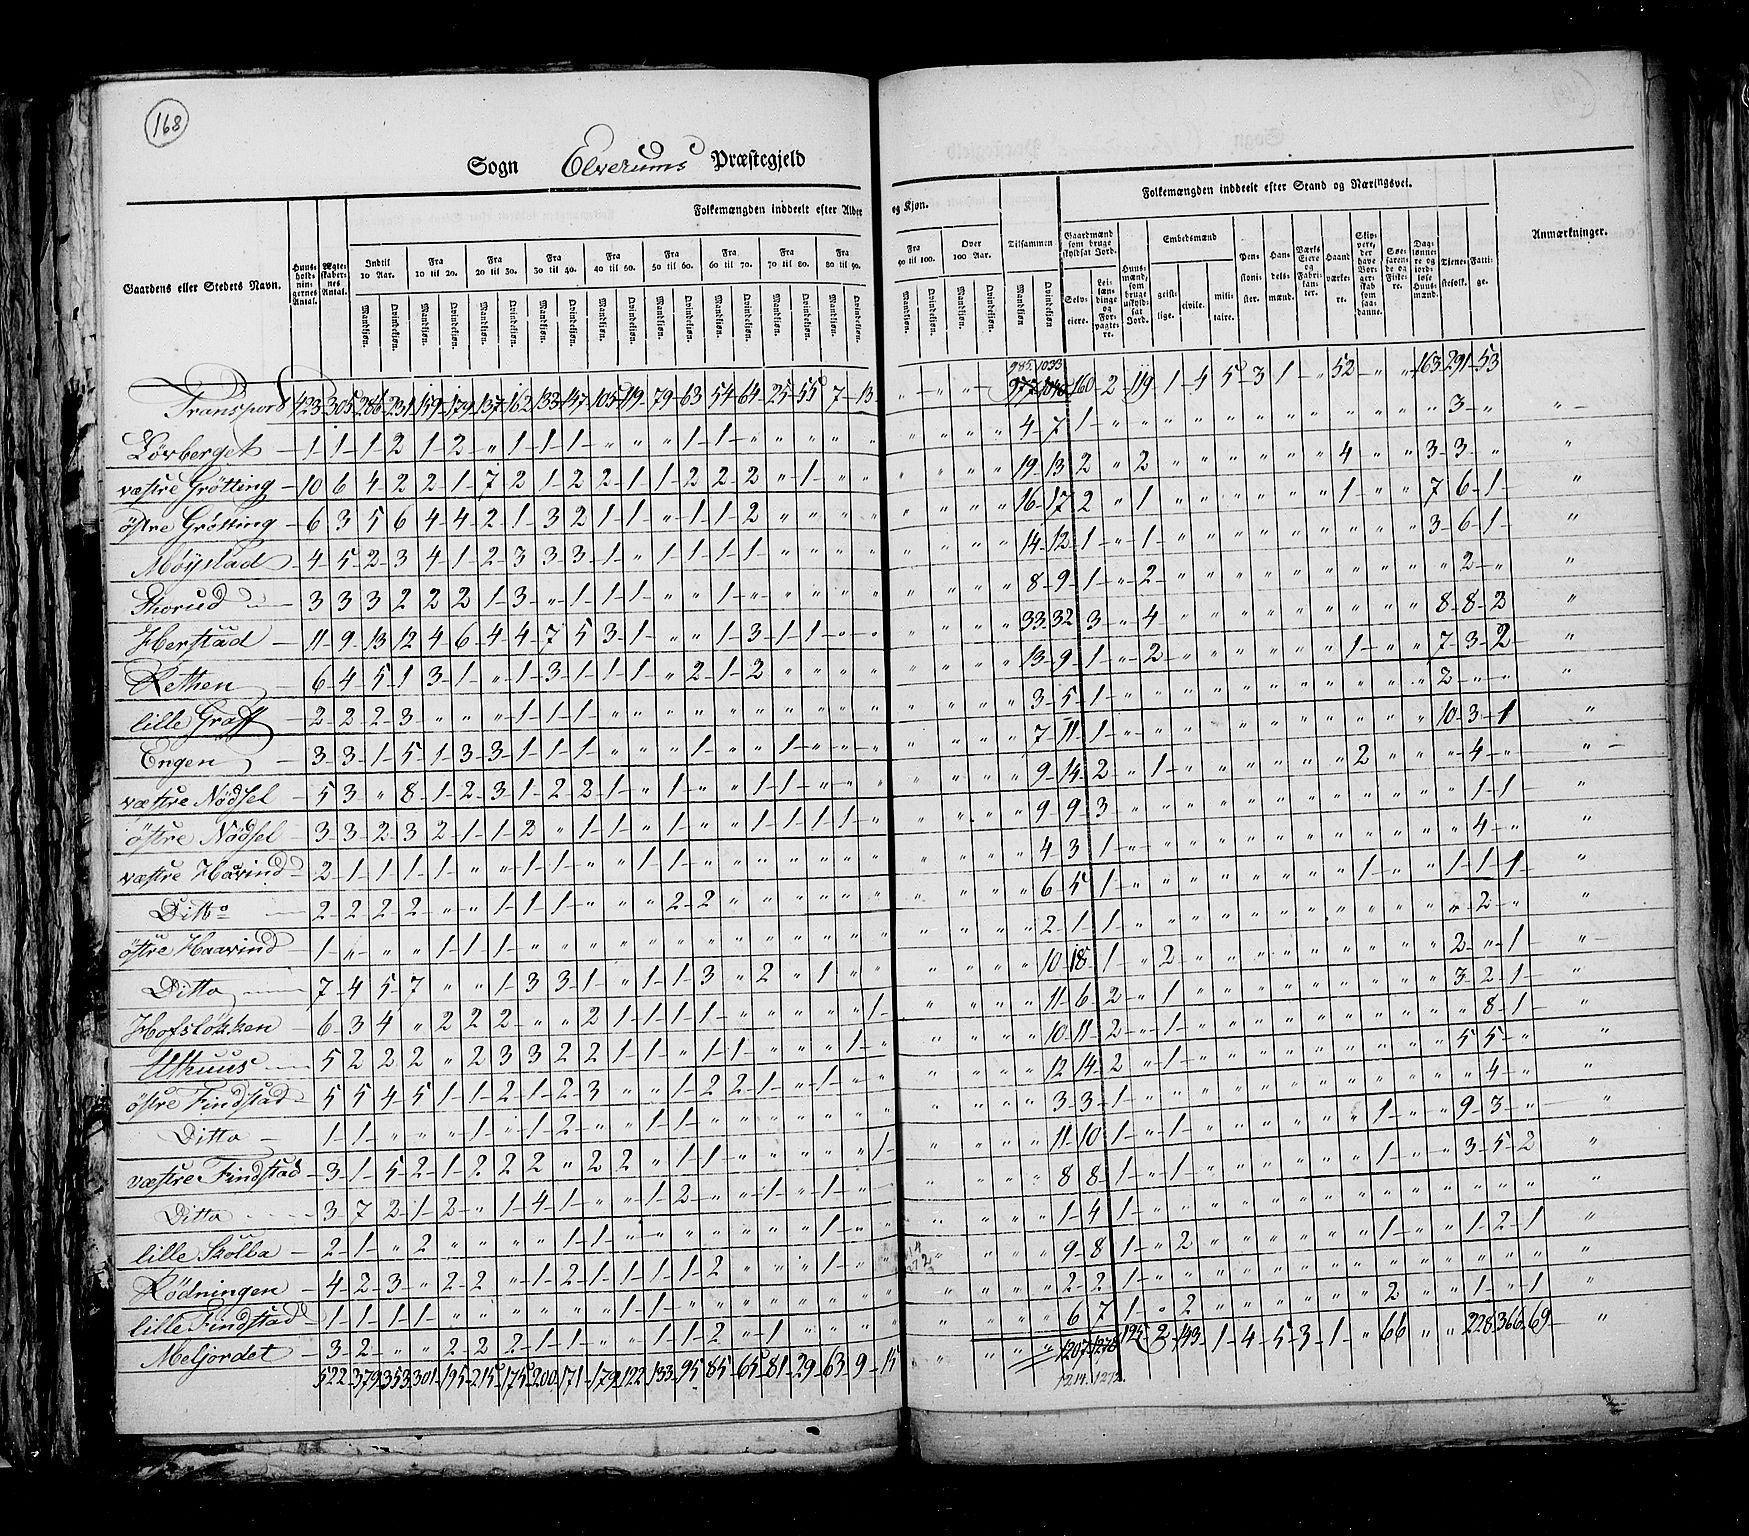 168
Sogn Elverums Præstegjeld
Folkemængden inddeelt efter Alder og Kjøn.
Folkemængden inddeelt efter Stand og Næringsvei.
Gaardens eller Stedets Navn.
Huusholdningernes Antal.
Ægteskabernes Antal.
Indtil 10 Aar.
Fra 10 til 20.
Fra 20 til 30.
Fra 30 til 40.
Fra 40 til 50.
Fra 50 til 60.
Fra 60 til 70.
Fra 70 til 80.
Fra 80 til 90.
Fra 90 til 100.
Over 100 Aar.
Tilsammen
Mandkjøn. Qvindekjøn.
Gaardmænd som bruge skyldsat Jord.
Selveiere.
Leilændinge og Forpagtere.
Huusmænd, som bruge uskyldsat Jord.
Embedsmænd
geistlige. civile. militaire.
Pensionister.
Handelsmænd.
Værks Eiere og Fabrikanter.
Haandværkere.
Søefarende og Fiskere.
Daglønnere og jordløse Huusmænd.
Tjenestefolk.
Fattige.
Anmærkninger.
985. 1033
Transport 423 305 286 231 159 179 137 162 133 137 105 119 79 63 54 64 25 55 7 13 " " " " 977 1040 160 2 119 1 4 5 3 1 " 52 " " 163 291 53
Lörberget 1 1 1 2 1 2 " 1 1 1 " " " 1 1 " " " " " " " " " 4 7 1 " " " " " " " " " " " " 3 "
væstre Grötting 10 6 4 2 2 1 7 2 1 2 2 1 1 2 2 2 " 1 " " " " " " 19 13 2 " 2 " " " " " " 4 " " 3 3 "
östre Grötting 6 3 5 6 4 4 2 1 3 2 1 1 " 1 1 2 " " " " " " " " 16 17 2 " 1 " " " " " " 1 " " 7 6 1
Möystad 4 5 2 3 4 1 2 3 3 3 1 " 1 1 1 1 " " " " " " " " 14 12 1 " 1 " " " " " " " " " 3 6 1
Thorud 3 3 3 2 2 2 1 3 " 1 1 1 " " 1 " " " " " " " " " 8 9 1 " 2 " " " " " " " " " " 2 "
Herstad 11 9 13 12 4 6 4 4 7 5 3 1 " " 1 3 1 1 " " " " " " 33 32 3 " 4 " " " " " " " " " 8 8 2
Rethen 6 4 5 1 3 1 " 1 3 1 1 1 " 2 1 2 " " " " " " " " 13 9 1 " 2 " " " " " " 1 " " 7 3 2
lille Graff 2 2 2 3 " " " 1 1 1 " " " " " " " " " " " " " " 3 5 1 " " " " " " " " " " " 2 " "
Engen 3 3 1 5 1 3 3 1 1 1 " " " 1 " " 1 " " " " " " " 7 11 1 " " " " " " " " " " " 10 3 1
væstre Nödsel 5 3 " 8 1 2 3 1 2 2 1 " 1 " " 1 1 " " " " " " " 9 14 2 " 1 " " " " " " 2 " " " 4 "
östre Nödsel 3 3 2 3 2 1 1 2 " 1 1 " 1 " " 1 1 1 1 " " " " " 9 9 3 " " " " " " " " " " " " 1 1
væstre Haavind 2 1 1 1 1 " " 1 1 " " 1 1 " " " " " " " " " " " 4 3 1 " " " " " " " " " " " " 4 "
Ditto 2 2 2 2 " " 1 1 1 " " " 2 2 " " " " " " " " " " 6 5 1 " " " " " " " " 1 " " 1 1 1
östre Haavind 1 " " " 1 1 1 " " " " " " " " " " " " " " " " " 2 1 1 " " " " " " " " " " " " 2 "
Ditto 7 4 5 7 " " 1 3 3 1 " 1 1 3 " 2 " 1 " " " " " " 10 18 1 " 2 " " " " " " " " " 2 " 1
Hofslökken 6 3 4 " 2 2 2 " " 2 1 1 1 1 " " " " " 1 " " " " 11 6 2 " 1 " " " " " " " " " 3 2 1
Uthuus 5 2 2 2 " 2 3 3 2 2 1 1 " 1 1 " " " 1 " " " " " 10 11 2 " 1 " " " " " " " " " " 8 1
östre Findstad 5 5 4 5 1 1 2 1 2 3 " " 1 2 2 1 " 1 " " " " " " 12 14 2 " 1 " " " " " " " " " 5 5 "
Ditto 1 1 " " " 1 " 1 2 " " 1 1 " " " " " " " " " " " 3 3 1 " " " " " " " " " " " " 4 "
væstre Findstad 3 1 5 2 1 2 2 2 " 2 2 " 1 1 " " " " " 1 " " " " 11 10 1 " 1 " " " " " " 1 " " 9 3 "
Ditto 3 7 2 1 2 " 1 4 1 " " 1 2 " " 1 " 1 " " " " " " 8 8 1 " 1 " " " " " " 1 " " 3 5 2
lille Skolla 2 1 " 2 " " " " 1 1 " " " " " " " 1 " " " " " " 1 4 1 " " " " " " " " " " " " " "
Rödningen 4 2 3 " 2 2 " 1 2 1 1 1 1 2 " " " 1 " " " " " " 9 8 1 " 2 " " " " " " 1 " " 1 2 1
lille Findstad 1 1 1 1 " " " " " " 1 1 " " " " " " " " " " " " 2 2 1 " " " " " " " " " " " " " "
Meljordet 3 2 " " 2 2 2 1 1 " " 1 1 2 " 1 " " " " " " " " 6 7 1 " 2 " " " " " " 2 " " 1 " 1
522 379 353 301 195 215 175 200 171 179 122 133 95 85 65 81 29 63 9 15 " " " " 1207 1278 195 2 143 1 4 5 3 1 " 66 " " 228 366 69
1214. 1272